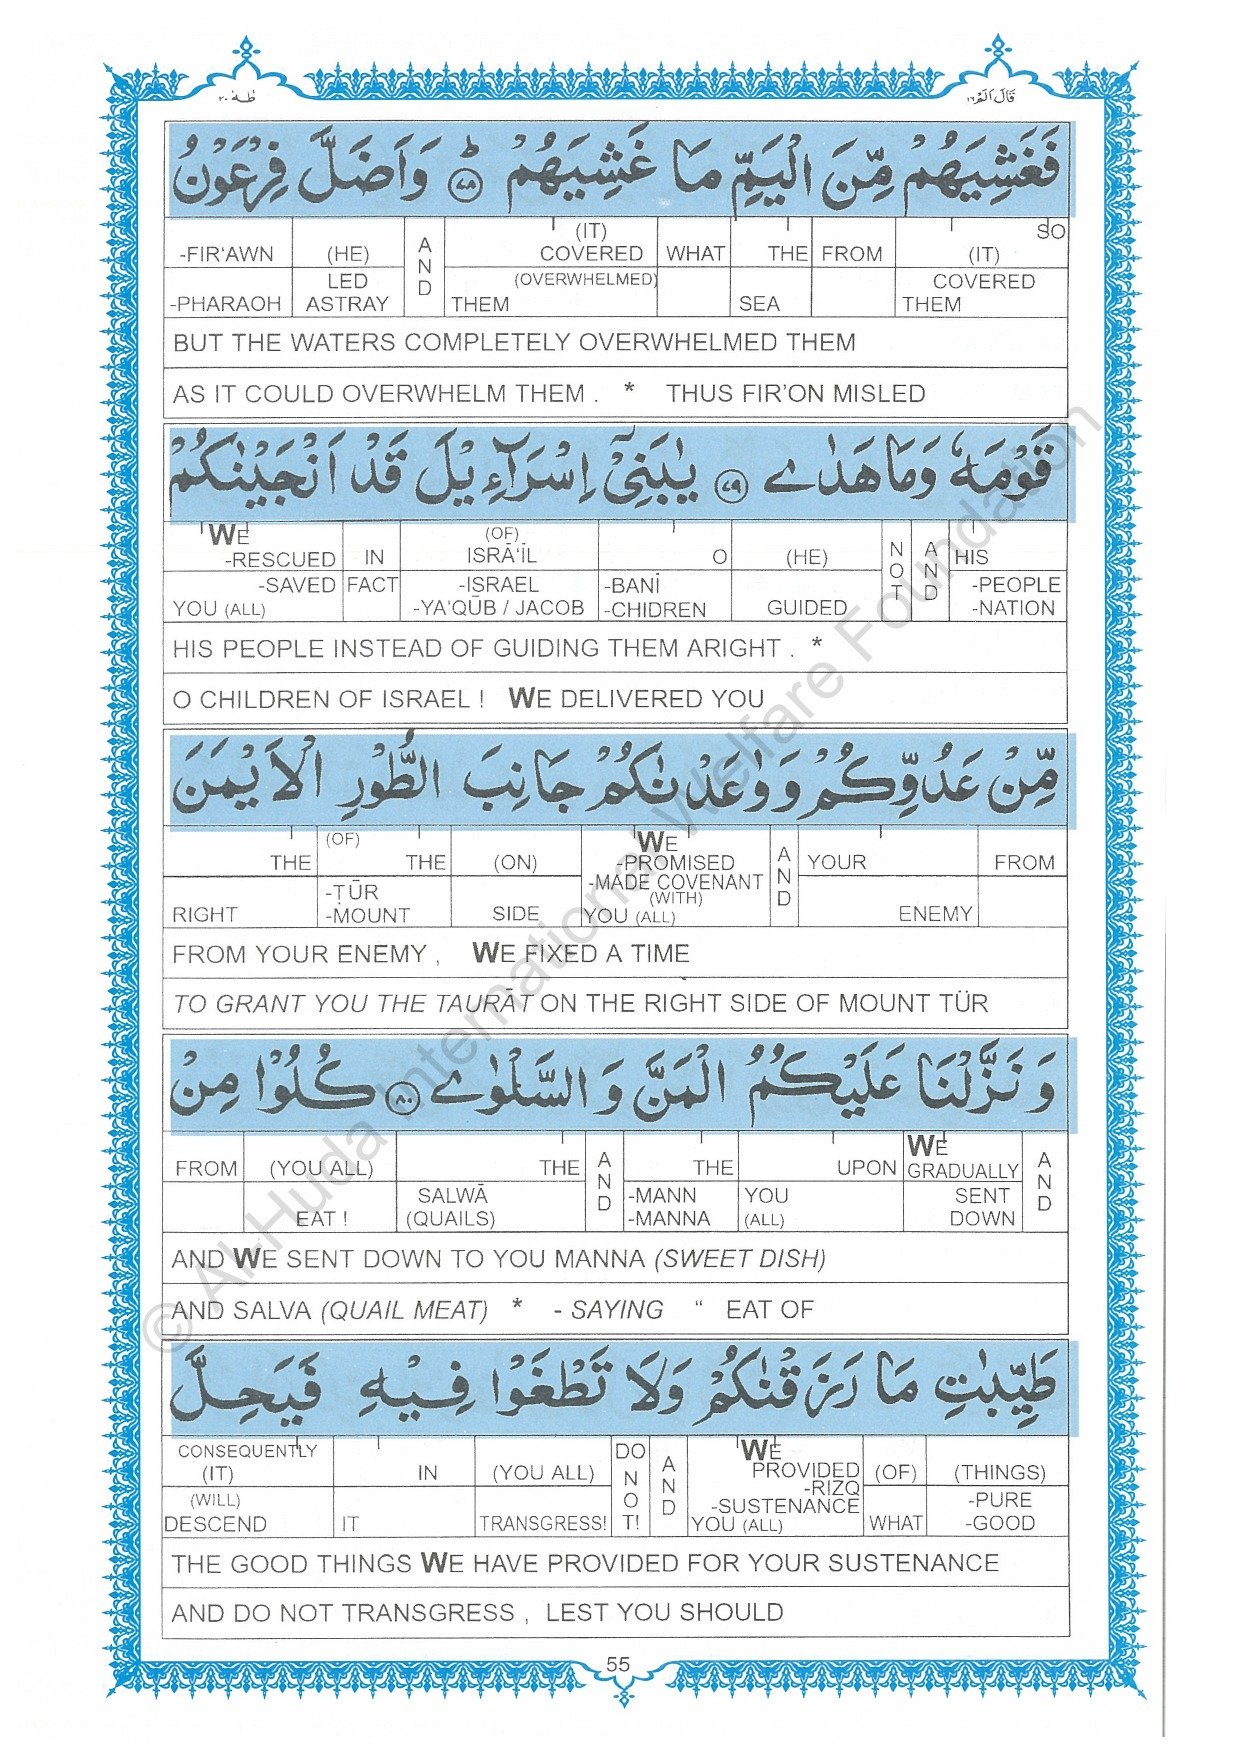 طٰهٰ ٢٠
قَالَ اَلَمْ ١٦
فَغَشِيَهُمْ مِّنَ الْيَمِّ مَا غَشِيَهُمْ ؕ ﴿٧٨﴾ وَاَضَلَّ فِرْعَوْنُ
-FIR‘AWN (HE) AND (IT) COVERED WHAT THE FROM SO (IT)
-PHARAOH LED ASTRAY (OVERWHELMED) THEM SEA COVERED THEM
BUT THE WATERS COMPLETELY OVERWHELMED THEM
AS IT COULD OVERWHELM THEM . * THUS FIR’ON MISLED
قَوْمَهٗ وَمَا هَدٰے ﴿٧٩﴾ يٰبَنِيْٓ اِسْرَآءِيْلَ قَدْ اَنْجَيْنٰكُمْ
WE -RESCUED IN (OF) ISRĀ‘ĪL O (HE) NOT AND HIS
-SAVED YOU (ALL) FACT -ISRAEL -YA‘QŪB / JACOB -BANĪ -CHIDREN GUIDED -PEOPLE -NATION
HIS PEOPLE INSTEAD OF GUIDING THEM ARIGHT . *
O CHILDREN OF ISRAEL ! WE DELIVERED YOU
مِّنْ عَدُوِّكُمْ وَوٰعَدْنٰكُمْ جَانِبَ الطُّوْرِ الْاَيْمَنَ
THE (OF) THE (ON) WE -PROMISED -MADE COVENANT AND YOUR FROM
RIGHT -ṬŪR -MOUNT SIDE (WITH) YOU (ALL) ENEMY
FROM YOUR ENEMY , WE FIXED A TIME
TO GRANT YOU THE TAURĀT ON THE RIGHT SIDE OF MOUNT TÜR
وَ نَزَّلْنَا عَلَيْكُمُ الْمَنَّ وَ السَّلْوٰے ﴿٨٠﴾ كُلُوْا مِنْ
FROM (YOU ALL) THE AND THE UPON WE GRADUALLY AND
EAT ! SALWĀ (QUAILS) -MANN -MANNA YOU (ALL) SENT DOWN
AND WE SENT DOWN TO YOU MANNA (SWEET DISH)
AND SALVA (QUAIL MEAT) * - SAYING “ EAT OF
طَيِّبٰتِ مَا رَزَقْنٰكُمْ وَلَا تَطْغَوْا فِيْهِ فَيَحِلَّ
CONSEQUENTLY (IT) IN (YOU ALL) DO NOT! AND WE PROVIDED -RIZQ (OF) (THINGS)
(WILL) DESCEND IT TRANSGRESS! -SUSTENANCE YOU (ALL) WHAT -PURE -GOOD
THE GOOD THINGS WE HAVE PROVIDED FOR YOUR SUSTENANCE
AND DO NOT TRANSGRESS , LEST YOU SHOULD
55
© Al-Huda International Welfare Foundation